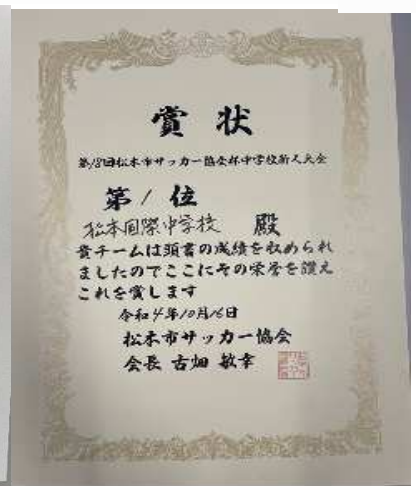 賞状
第18回松本市サッカー協会杯中学校新人大会
第1位
松本国際中学校 殿
貴チームは頭書の成績を収められ
ましたのでここにその栄誉を讃え
これを賞します
令和4年10月16日
松本市サッカー協会
会長 古畑 敏幸